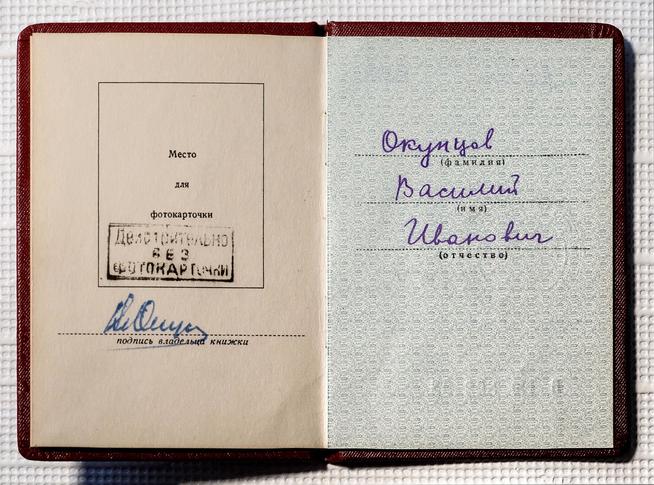 Место
для
фотокарточки
Действительно
БЕЗ
ФОТОКАРТОЧКИ
подпись владельца книжки
Окунцов
(фамилия)
Василий
(имя)
Иванович
(отчество)